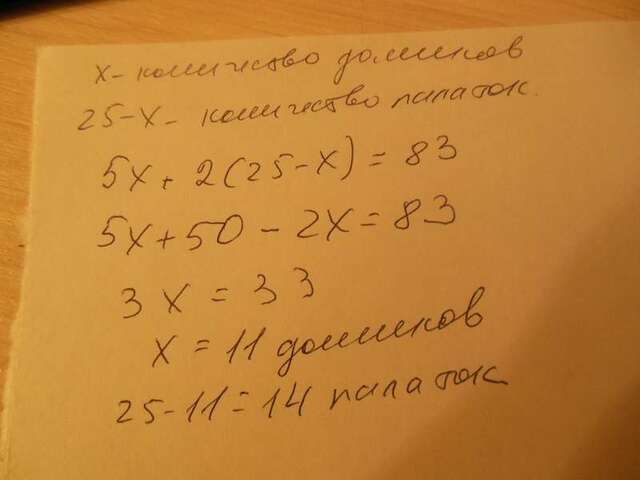 x - количество домиков
25-x - количество палаток.
5x + 2(25-x) = 83
5x+50 - 2x = 83
3x = 33
x = 11 домиков
25-11=14 палаток